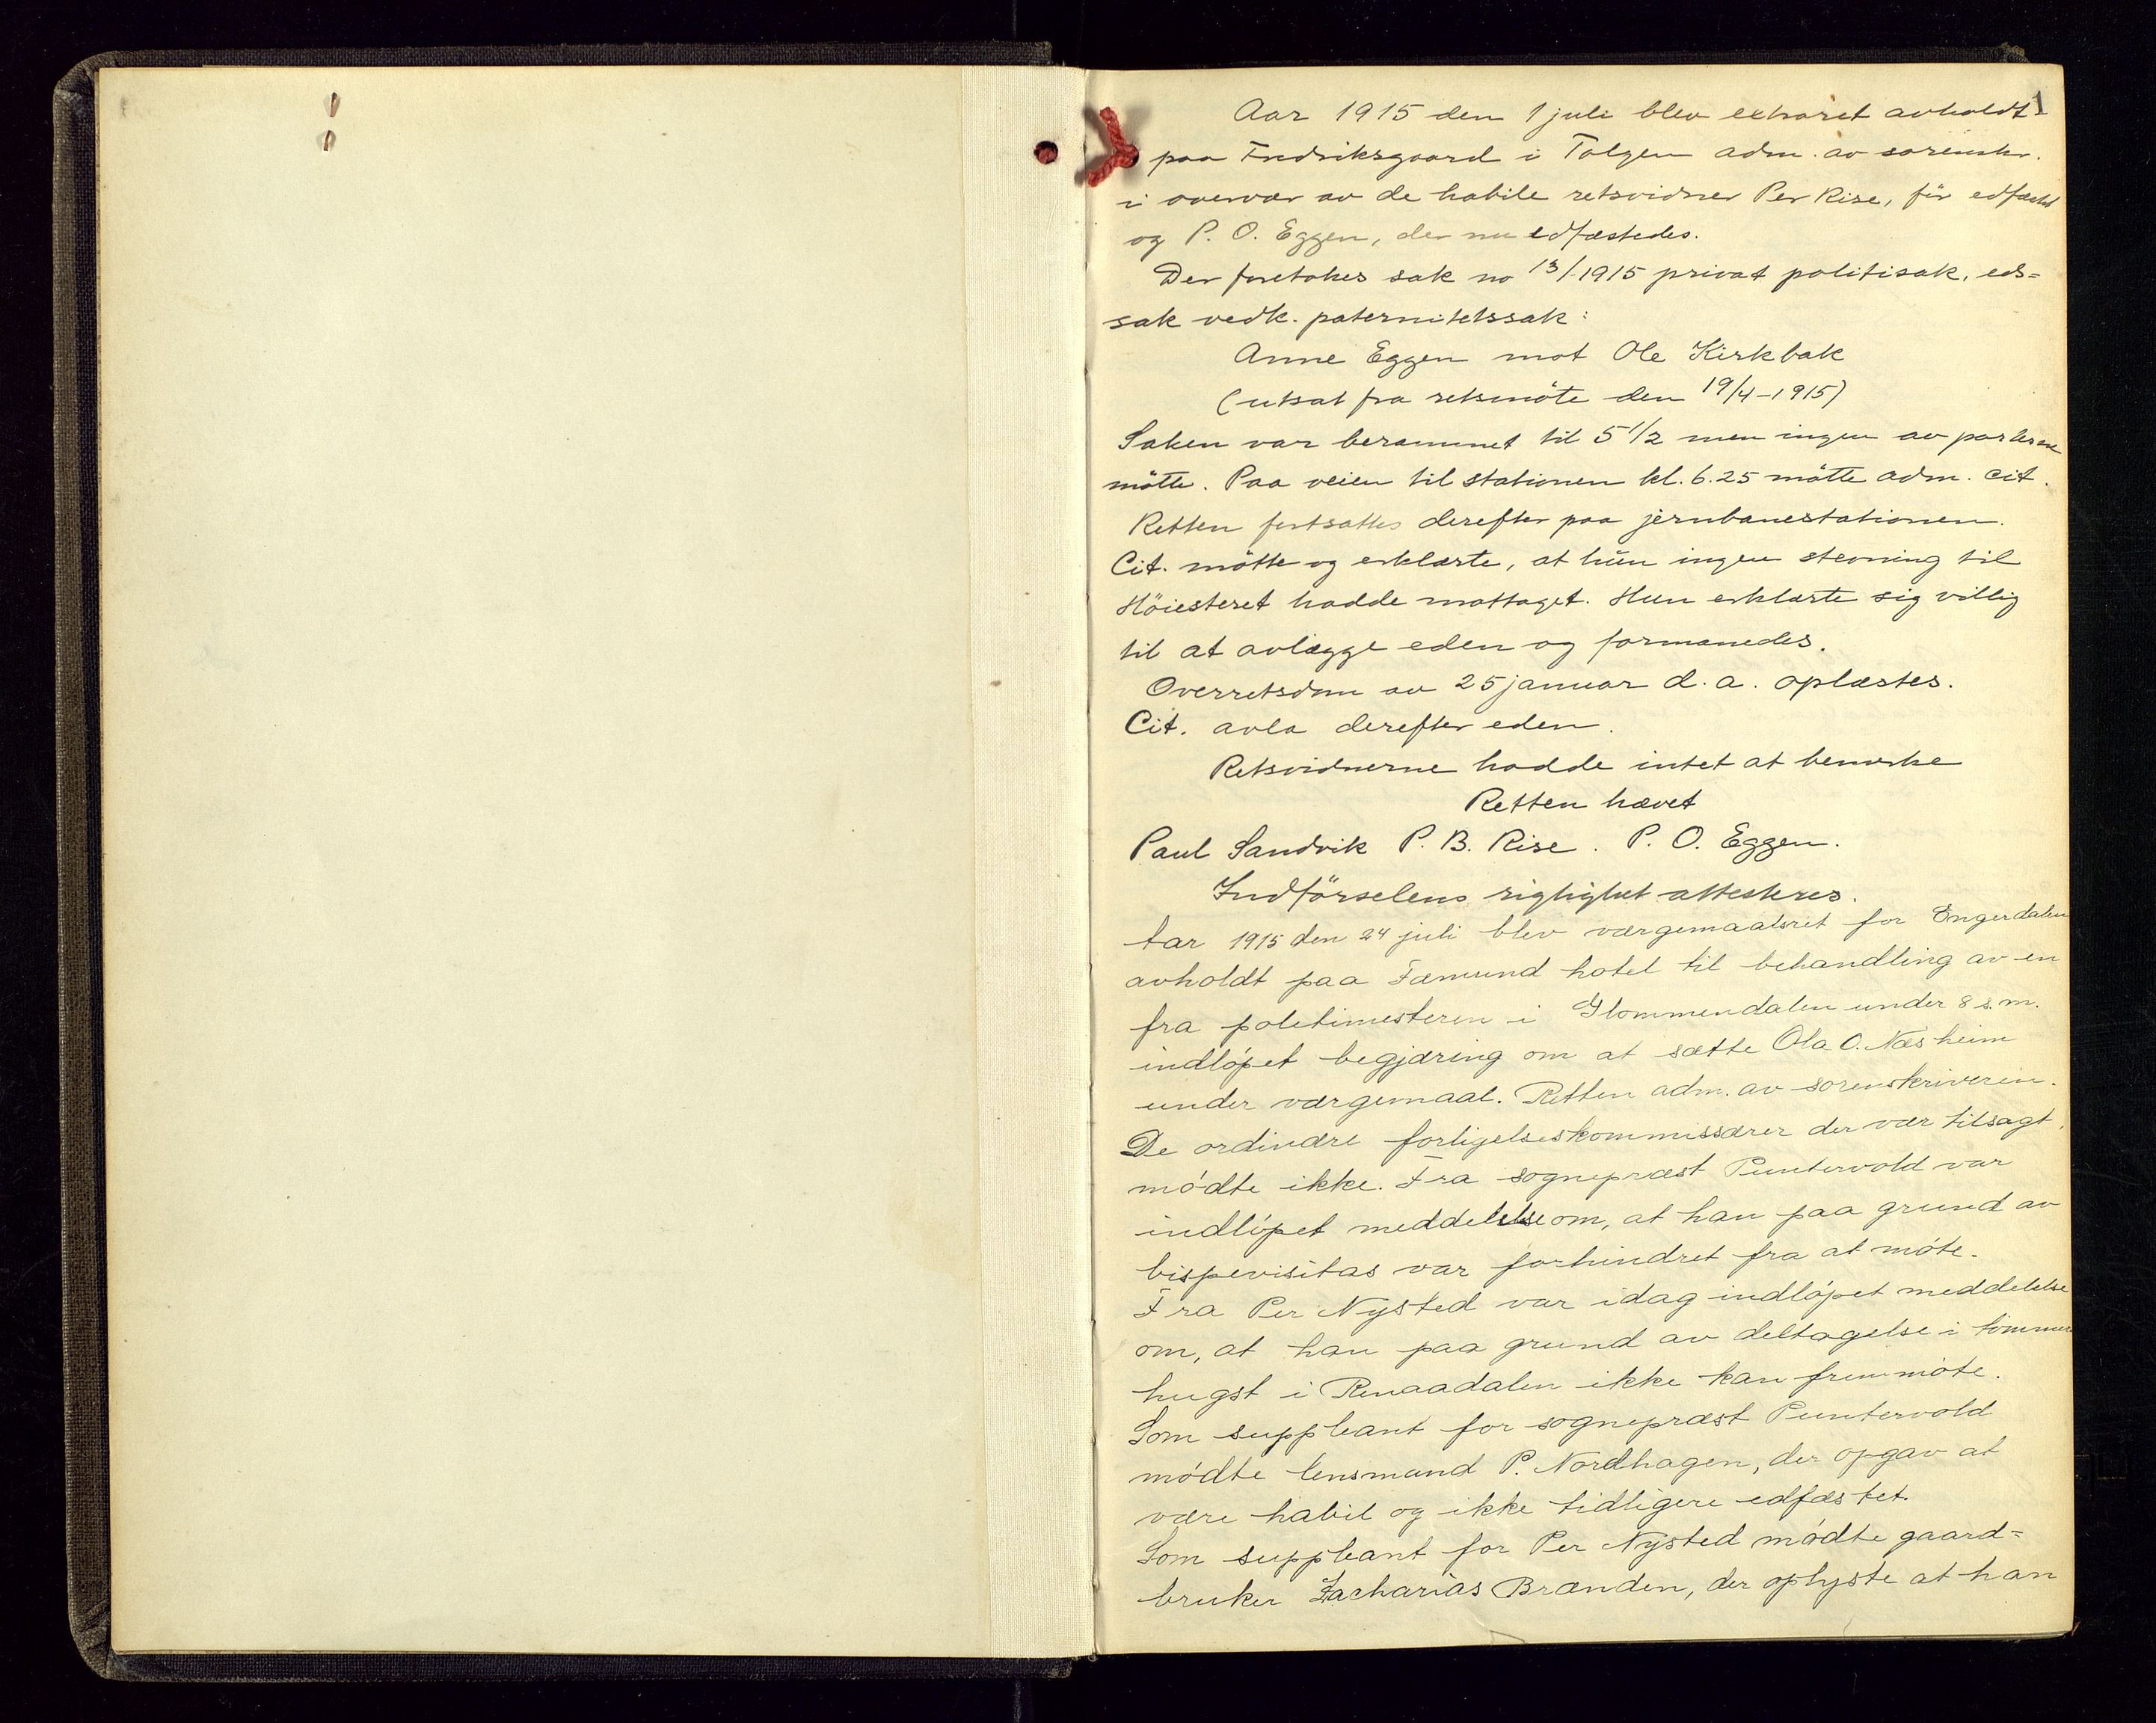 1
Aar 1915 den 1 juli blev extraret avholdt
paa Fredriksgaard i Tolgen adm. av sorenskr.
i overvær av de habile retsvidner Per Rise, för edfæstet
og P. O. Eggen, der nu edfæstedes.
Der foretokes sak no 13/1915 privat politisak, eds-
sak vedk. paternitetssak:
Anne Eggen mot Ole Kirkbak
(utsat fra retsmöte den 19/4-1915)
Saken var berammet til 5 1/2 men ingen av parterne
mötte. Paa veien til stationen kl. 6.25 mötte adm. cit.
Retten fortsattes derefter paa jernbanestationen.
Cit. mötte og erklærte, at hun ingen stevning til
Höiesteret hadde mottaget. Hun erklærte sig villig
til at avlægge eden og formanedes.
Overretsdom av 25 januar d. a. oplæstes.
Cit. avla derefter eden.
Retsvidnerne hadde intet at bemerke
Retten hævet
Paul Sandvik P. B. Rise. P. O. Eggen.
Indförselens rigtighet attesteres.
Aar 1915 den 24 juli blev værgemaalsret for Engerdalen
avholdt paa Fæmund hotel til behandling av en
fra politimesteren i Glommendalen under 8 s. m.
indløpet begjæring om at sætte Ola O. Næsheim
under værgemaal. Retten adm. av sorenskriveren.
De ordinære forligelseskommissærer der var tilsagt,
mødte ikke. Fra sognepræst Puntervold var
indløpet meddelelse om, at han paa grund av
bispevisitas var forhindret fra at møte.
Fra Per Nysted var idag indløpet meddelelse
om, at han paa grund av deltagelse i tømmer
hugst i Renaadalen ikke kan fremmøte.
Som suppleant for sognepræst Puntervold
mødte lensmand P. Nordhagen, der opgav at
være habil og ikke tidligere edfæstet.
Som suppleant for Per Nysted mødte gaard-
bruker Zacharias Brænden, der oplyste at han